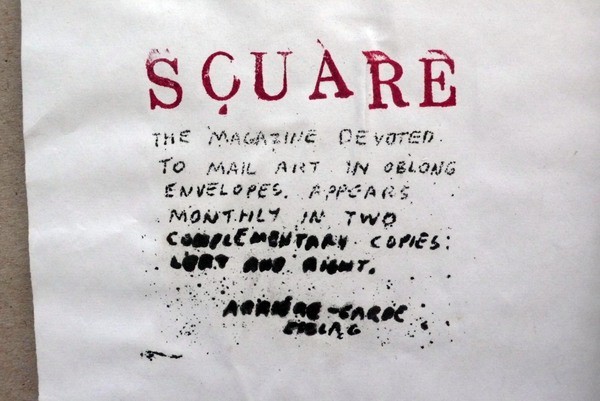 SQUARE
THE MAGAZINE DEVOTED
TO MAIL ART IN OBLONG
ENVELOPES. APPEARS
MONTHLY IN TWO
COMPLEMENTARY COPIES:
LEFT AND RIGHT.
ARRIÈRE-GARDE